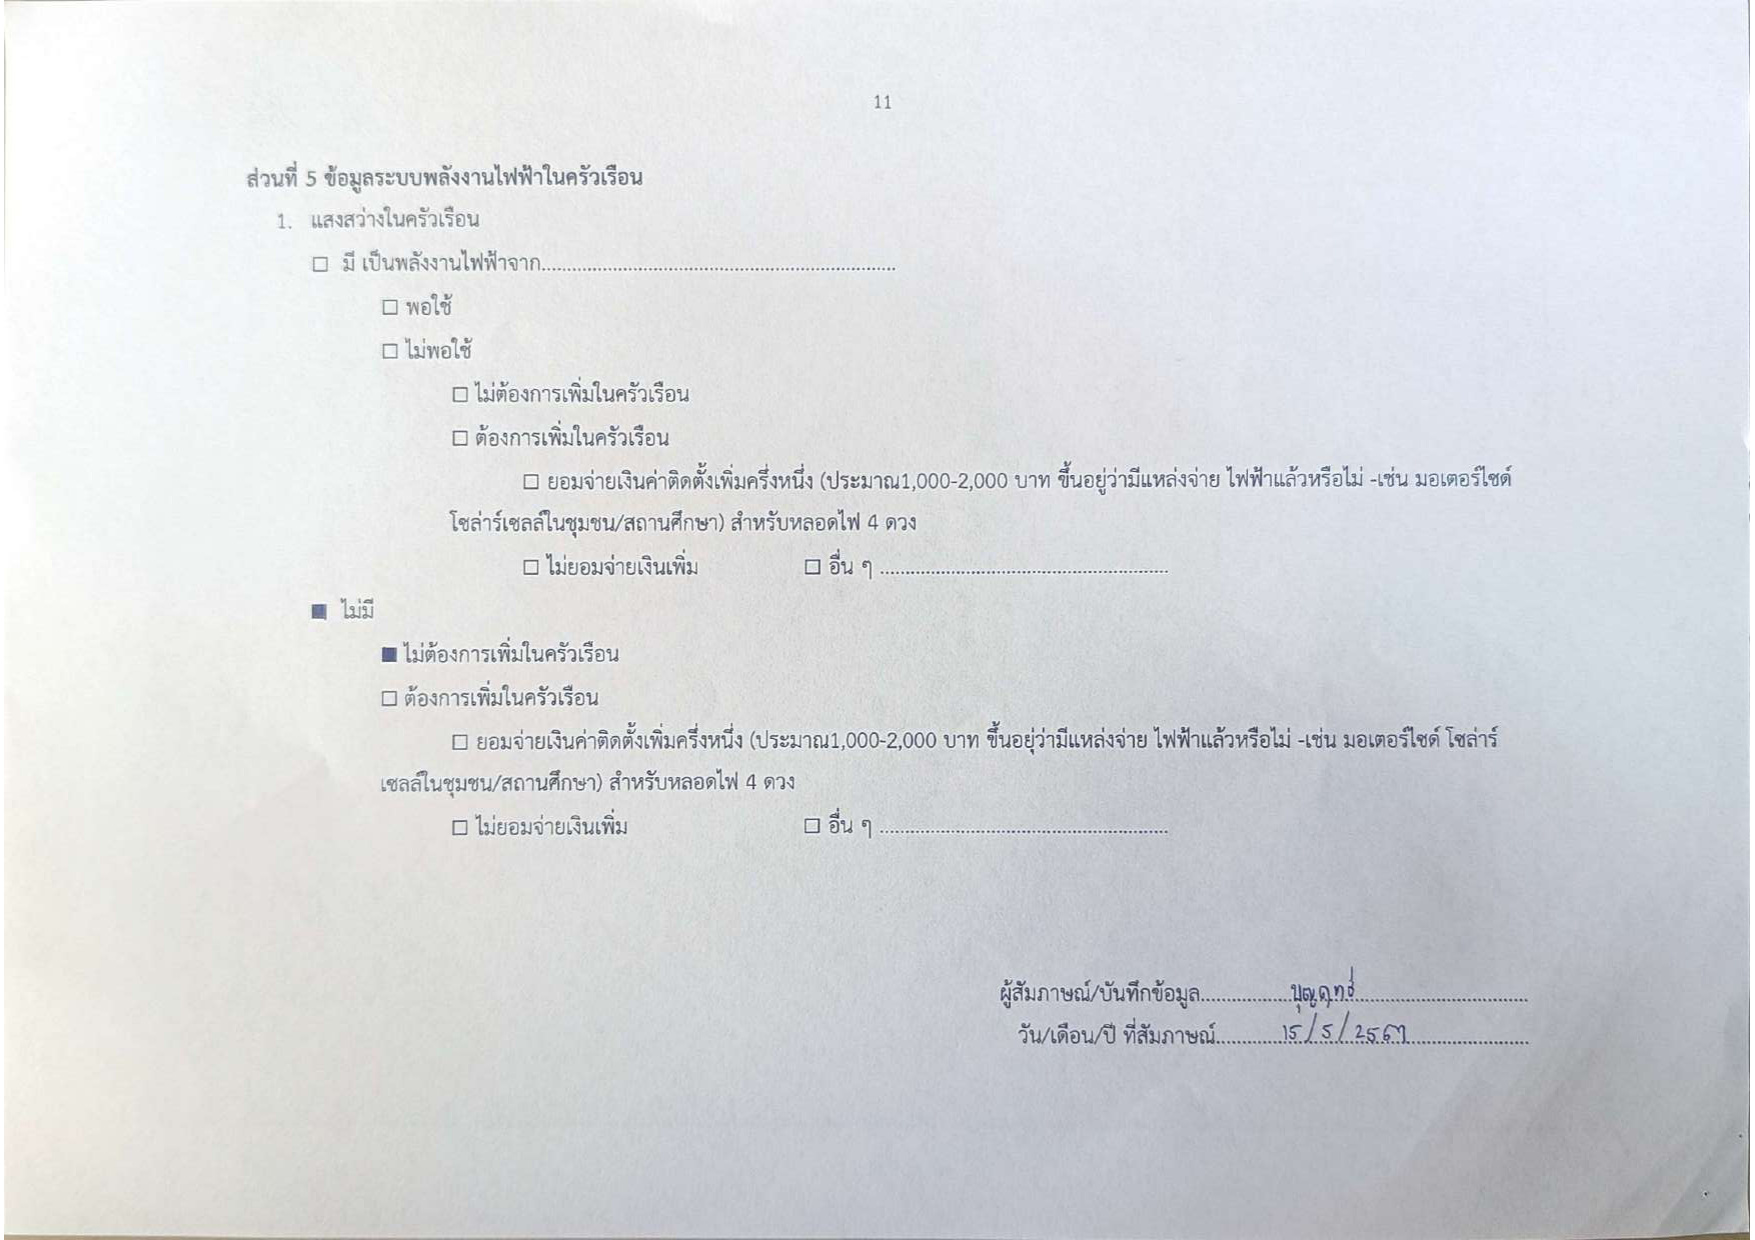 11
ส่วนที่ 5 ข้อมูลระบบพลังงานไฟฟ้าในครัวเรือน
1. แสงสว่างในครัวเรือน
☐ มี เป็นพลังงานไฟฟ้าจาก....................................................................
☐ พอใช้
☐ ไม่พอใช้
☐ ไม่ต้องการเพิ่มในครัวเรือน
☐ ต้องการเพิ่มในครัวเรือน
☐ ยอมจ่ายเงินค่าติดตั้งเพิ่มครึ่งหนึ่ง (ประมาณ1,000-2,000 บาท ขึ้นอยู่ว่ามีแหล่งจ่าย ไฟฟ้าแล้วหรือไม่ -เช่น มอเตอร์ไซด์
โซล่าร์เซลล์ในชุมชน/สถานศึกษา) สำหรับหลอดไฟ 4 ดวง
☐ ไม่ยอมจ่ายเงินเพิ่ม ☐ อื่น ๆ .......................................................
■ ไม่มี
■ ไม่ต้องการเพิ่มในครัวเรือน
☐ ต้องการเพิ่มในครัวเรือน
☐ ยอมจ่ายเงินค่าติดตั้งเพิ่มครึ่งหนึ่ง (ประมาณ1,000-2,000 บาท ขึ้นอยุ่ว่ามีแหล่งจ่าย ไฟฟ้าแล้วหรือไม่ -เช่น มอเตอร์ไซด์ โซล่าร์
เซลล์ในชุมชน/สถานศึกษา) สำหรับหลอดไฟ 4 ดวง
☐ ไม่ยอมจ่ายเงินเพิ่ม ☐ อื่น ๆ .......................................................
ผู้สัมภาษณ์/บันทึกข้อมูล.................บุญฤทธิ์.................................
วัน/เดือน/ปี ที่สัมภาษณ์.............15/5/2567.......................